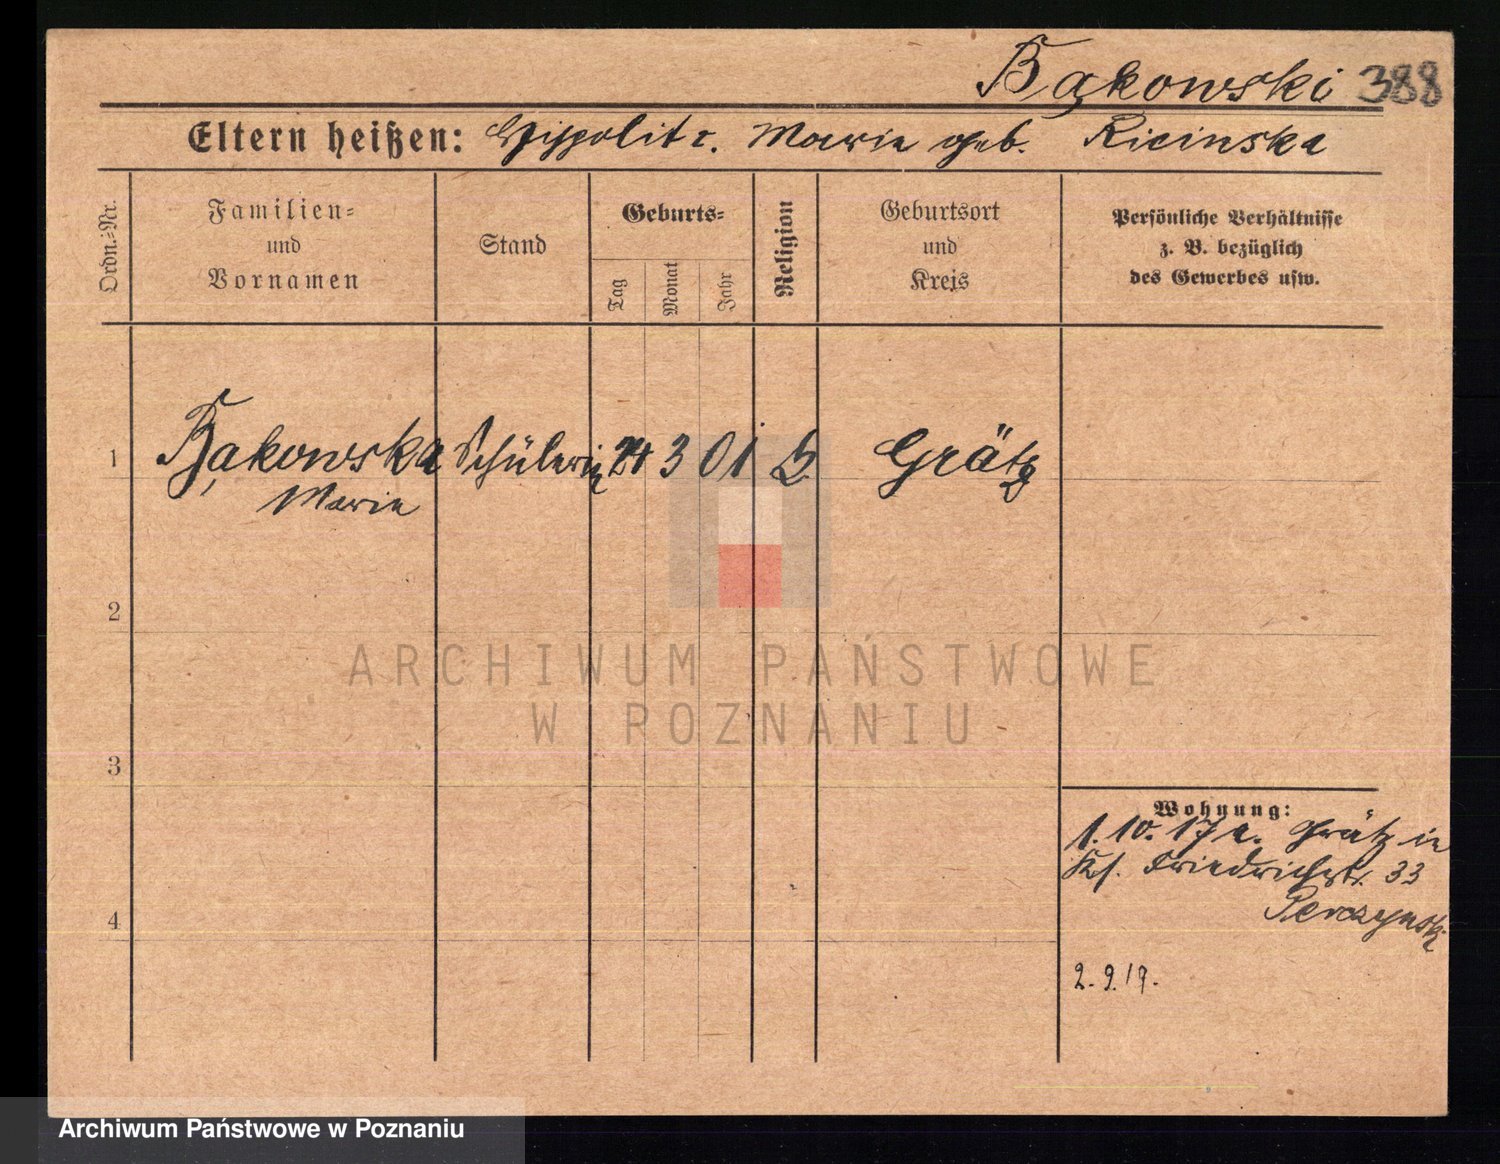 Bąkowski 388
Eltern heißen: Hippolit u. Marie geb. Kicinska
Ordn.-Nr.
Familien-
und
Vornamen
Stand
Geburts-
Tag
Monat
Jahr
Religion
Geburtsort
und
Kreis
Persönliche Verhältnisse
z. B. bezüglich
des Gewerbes usw.
1 Bąkowska Schülerin 24 3 01 Grätz
Marie
2
ARCHIWUM PAŃSTWOWE
W POZNANIU
3
Wohnung:
1.10.17 Grätz
Friedrichstr. 33
4
2.9.19.
Archiwum Państwowe w Poznaniu